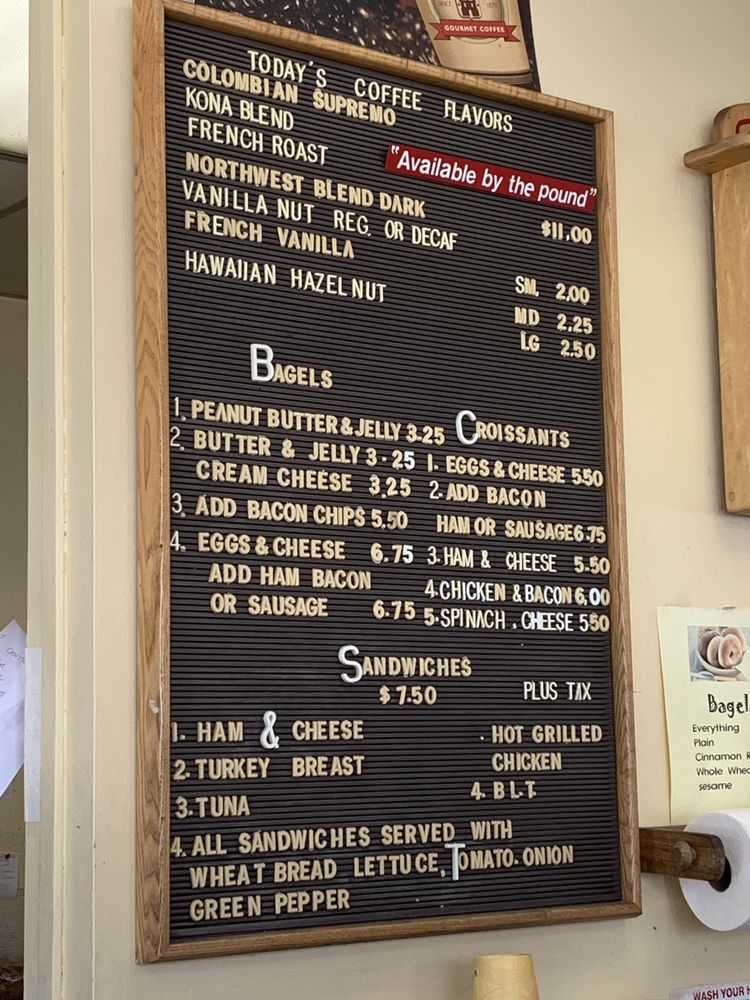 GOURMET COFFEE
TODAY'S COFFEE FLAVORS
COLOMBIAN SUPREMO
KONA BLEND
FRENCH ROAST
"Available by the pound"
NORTHWEST BLEND DARK
$11.00
VANILLA NUT REG. OR DECAF
FRENCH VANILLA
HAWAIIAN HAZELNUT
SM. 2.00
MD 2.25
LG 2.50
BAGELS
1. PEANUT BUTTER & JELLY 3.25
2. BUTTER & JELLY 3.25
CREAM CHEESE 3.25
3. ADD BACON CHIPS 5.50
4. EGGS & CHEESE 6.75
ADD HAM BACON
OR SAUSAGE 6.75
CROISSANTS
1. EGGS & CHEESE 5.50
2. ADD BACON
HAM OR SAUSAGE 6.75
3. HAM & CHEESE 5.50
4. CHICKEN & BACON 6.00
5. SPINACH . CHEESE 550
SANDWICHES
$7.50
PLUS TAX
1. HAM & CHEESE
2. TURKEY BREAST
3. TUNA
. HOT GRILLED
CHICKEN
4. B L.T.
4. ALL SANDWICHES SERVED WITH
WHEAT BREAD LETTUCE, TOMATO. ONION
GREEN PEPPER
Bagel
Everything
Plain
Cinnamon R
Whole Whea
sesame
WASH YOUR